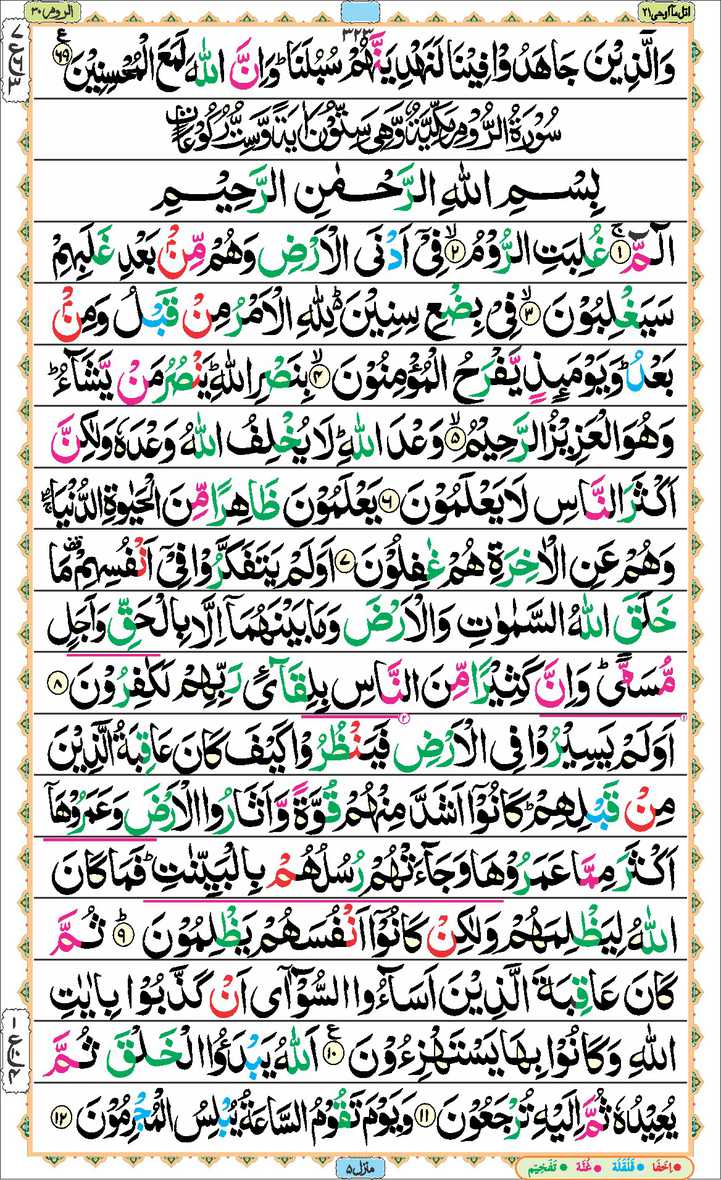 اتل ما اوحی ۲۱
الروم ۳۰
۳۲۳
وَالَّذِيْنَ جَاهَدُوْا فِيْنَا لَنَهْدِيَنَّهُمْ سُبُلَنَا ؕ وَاِنَّ اللّٰهَ لَمَعَ الْمُحْسِنِيْنَ ۶۹ ع
سُوْرَةُ الرُّوْمِ مَكِّيَّةٌ وَّهِيَ سِتُّوْنَ اٰيَةً وَّسِتُّ رُكُوْعَاتٍ
بِسْمِ اللّٰهِ الرَّحْمٰنِ الرَّحِيْمِ
الٓمّٓ ۚ ۱ غُلِبَتِ الرُّوْمُ ۙ ۲ فِیْۤ اَدْنَی الْاَرْضِ وَهُمْ مِّنْۢ بَعْدِ غَلَبِهِمْ
سَيَغْلِبُوْنَ ۙ ۳ فِیْ بِضْعِ سِنِيْنَ ؕ لِلّٰهِ الْاَمْرُ مِنْ قَبْلُ وَمِنْۢ
بَعْدُ ؕ وَيَوْمَئِذٍ يَّفْرَحُ الْمُؤْمِنُوْنَ ۙ ۴ بِنَصْرِ اللّٰهِ ؕ يَنْصُرُ مَنْ يَّشَآءُ ؕ
وَهُوَ الْعَزِيْزُ الرَّحِيْمُ ۙ ۵ وَعْدَ اللّٰهِ ؕ لَا يُخْلِفُ اللّٰهُ وَعْدَهٗ وَلٰكِنَّ
اَكْثَرَ النَّاسِ لَا يَعْلَمُوْنَ ۶ يَعْلَمُوْنَ ظَاهِرًا مِّنَ الْحَيٰوةِ الدُّنْيَا ۖۚ
وَهُمْ عَنِ الْاٰخِرَةِ هُمْ غٰفِلُوْنَ ۷ اَوَلَمْ يَتَفَكَّرُوْا فِیْۤ اَنْفُسِهِمْ ۫ مَا
خَلَقَ اللّٰهُ السَّمٰوٰتِ وَالْاَرْضَ وَمَا بَيْنَهُمَاۤ اِلَّا بِالْحَقِّ وَاَجَلٍ
مُّسَمًّی ؕ وَاِنَّ كَثِيْرًا مِّنَ النَّاسِ بِلِقَآئِ رَبِّهِمْ لَكٰفِرُوْنَ ۸
اَوَلَمْ يَسِيْرُوْا فِی الْاَرْضِ فَيَنْظُرُوْا كَيْفَ كَانَ عَاقِبَةُ الَّذِيْنَ
مِنْ قَبْلِهِمْ ؕ كَانُوْۤا اَشَدَّ مِنْهُمْ قُوَّةً وَّاَثَارُوا الْاَرْضَ وَعَمَرُوْهَاۤ
اَكْثَرَ مِمَّا عَمَرُوْهَا وَجَآءَتْهُمْ رُسُلُهُمْ بِالْبَيِّنٰتِ ؕ فَمَا كَانَ
اللّٰهُ لِيَظْلِمَهُمْ وَلٰكِنْ كَانُوْۤا اَنْفُسَهُمْ يَظْلِمُوْنَ ؕ ۹ ثُمَّ
كَانَ عَاقِبَةَ الَّذِيْنَ اَسَآءُوا السُّوْٓاٰۤی اَنْ كَذَّبُوْا بِاٰيٰتِ
اللّٰهِ وَكَانُوْا بِهَا يَسْتَهْزِءُوْنَ ۱۰ ع اَللّٰهُ يَبْدَؤُا الْخَلْقَ ثُمَّ
يُعِيْدُهٗ ثُمَّ اِلَيْهِ تُرْجَعُوْنَ ۱۱ وَيَوْمَ تَقُوْمُ السَّاعَةُ يُبْلِسُ الْمُجْرِمُوْنَ ۱۲
منزل ۵
اخفا قلقلة غنة تفخيم